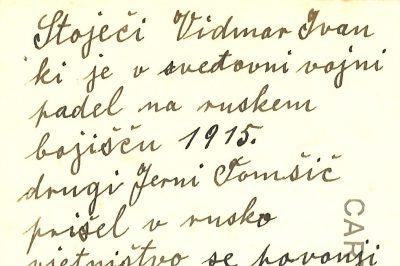 Stoječi Vidmar Ivan
ki je v svetovni vojni
padel na ruskem
bojišču 1915.
drugi Jerni Tomšič
prišel v rusko
vjetništvo se povonji
CAR